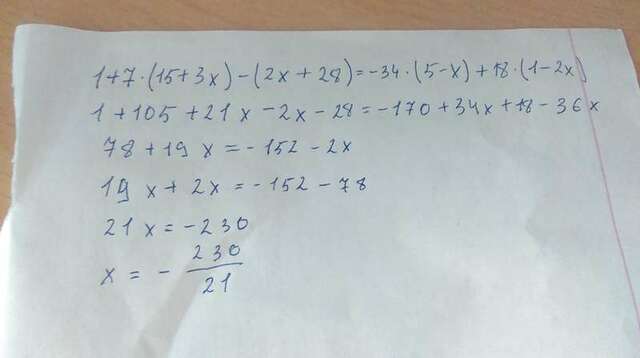 1+7·(15+3x)-(2x+28)=-34·(5-x)+18·(1-2x)
1+105+21x-2x-28=-170+34x+18-36x
78+19x=-152-2x
19x+2x=-152-78
21x=-230
x=-230/21